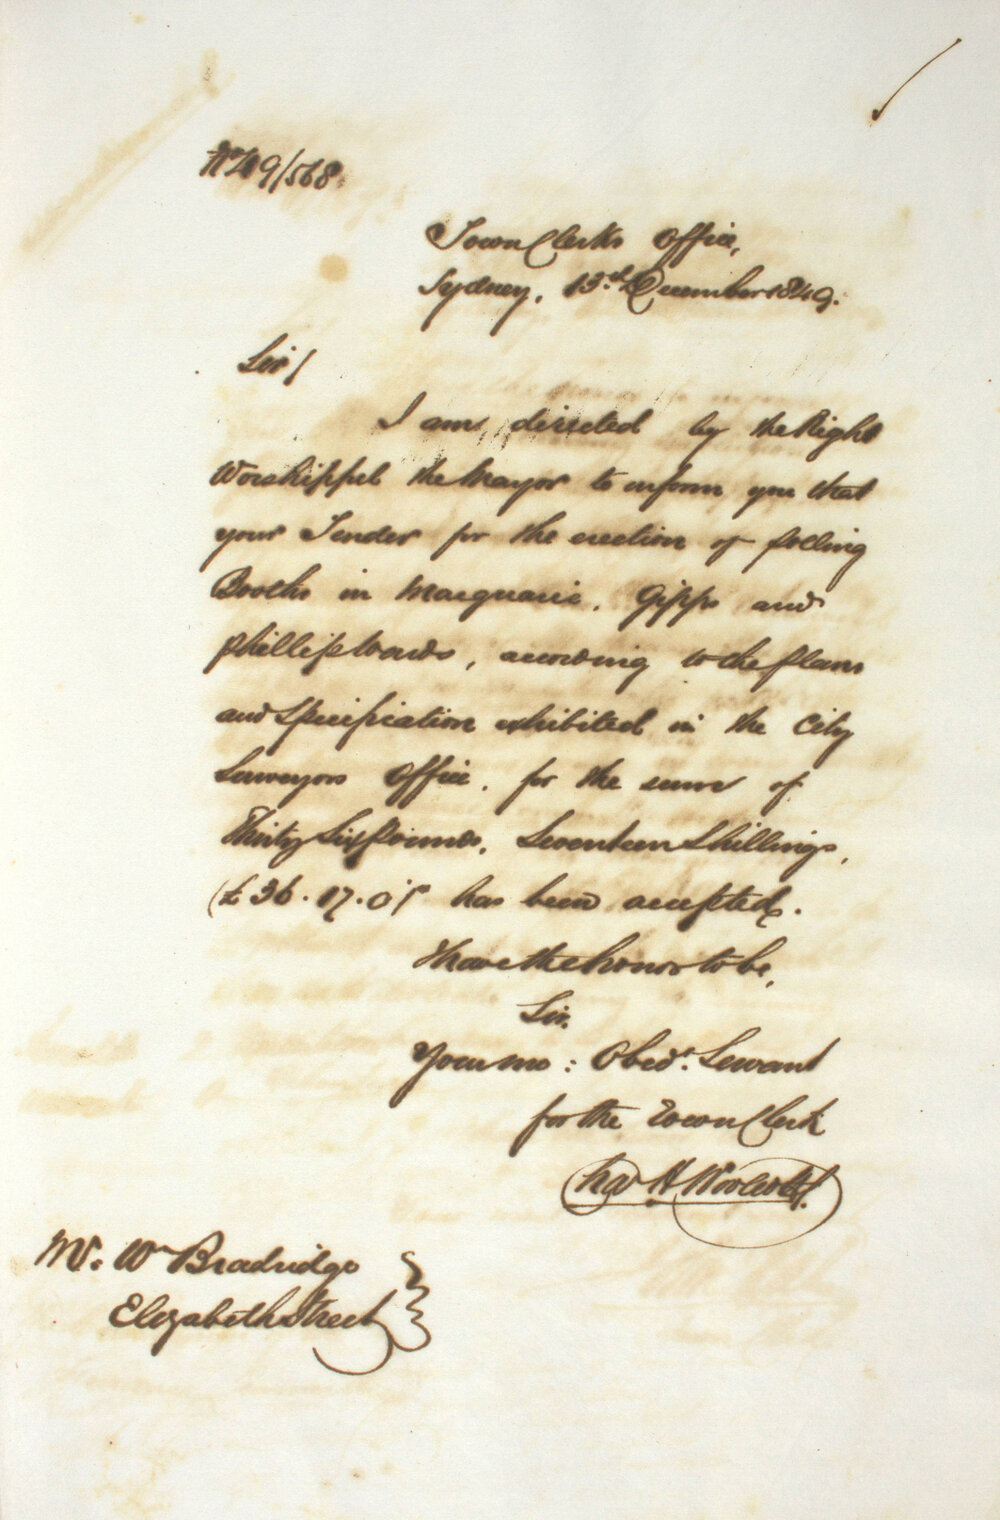 No 49/568.
Town Clerks Office,
Sydney, 13th December 1849.
Sir/
I am directed by the Right
Worshippel the Mayor to inform you that
your Tender for the erection of polling
Booths in Macquarie, Gipps and
Phillip Wards, according to the Plans
and Specification exhibited in the City
Surveyors Office, for the sum of
Thirty Six Pounds, Seventeen Shillings,
(£36.17.0) has been accepted.
I have the honor to be,
Sir,
Your mo: Obedt. Servant
for the Town Clerk
Chas H Woolcott
Mr. Wm Bradridge
Elizabeth Street